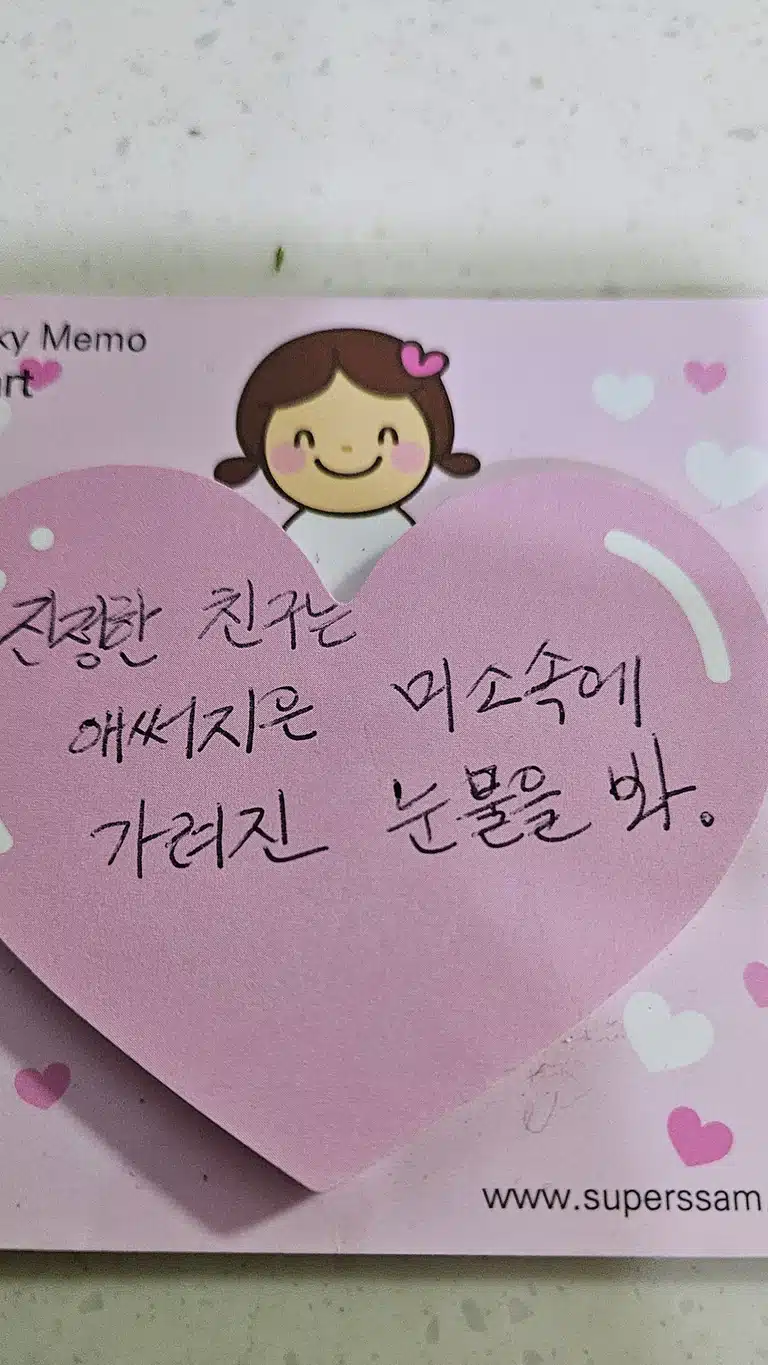 ky Memo
rt
진정한 친구는
애써지은 미소속에
가려진 눈물을 봐.
www.superssam.